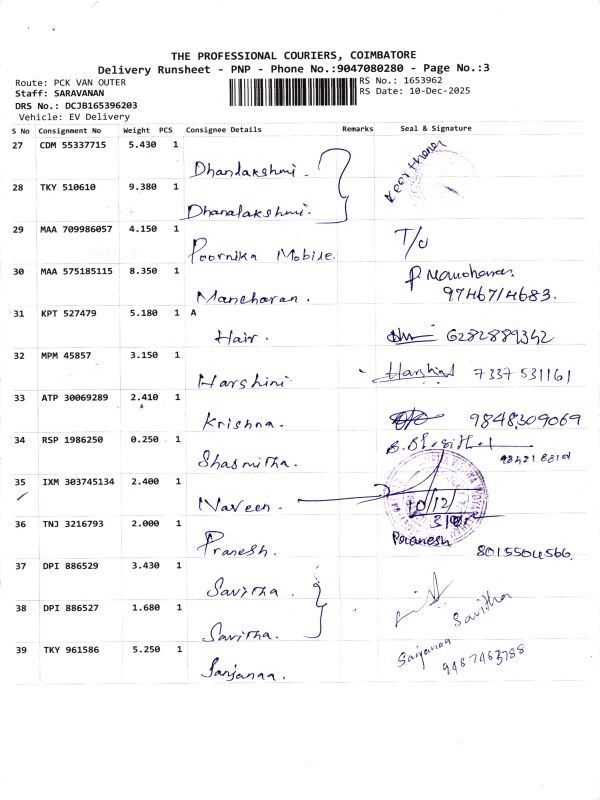 THE PROFESSIONAL COURIERS, COIMBATORE
Delivery Runsheet - PNP - Phone No.:9047080280 - Page No.:3
Route: PCK VAN OUTER RS No.: 1653962
Staff: SARAVANAN RS Date: 10-Dec-2025
DRS No.: DCJB165396203
Vehicle: EV Delivery
S No Consignment No Weight PCS Consignee Details Remarks Seal & Signature
27 CDM 55337715 5.430 1
Dhandakshmi. Keerthana
28 TKY 510610 9.380 1
Dhanalakshmi.
29 MAA 709986057 4.150 1
Poornika Mobile. T/c
30 MAA 575185115 8.350 1
Mancharan. P Manoharan
9746714683.
31 KPT 527479 5.180 1 A
Hair. 6282889342
32 MPM 45857 3.150 1
Harshini Harshini 7337 531161
33 ATP 30069289 2.410 1
Krishna. 9848309069
34 RSP 1986250 0.250 1
Shasmitha.
35 IXM 303745134 2.400 1
Naveen. 10/12/
36 TNJ 3216793 2.000 1
Pranesh. Pranesh 8015504566.
37 DPI 886529 3.430 1
Savitha.
38 DPI 886527 1.680 1
Savitha. Savitha
39 TKY 961586 5.250 1
Sanjanaa. Sanjanaa
9487463788